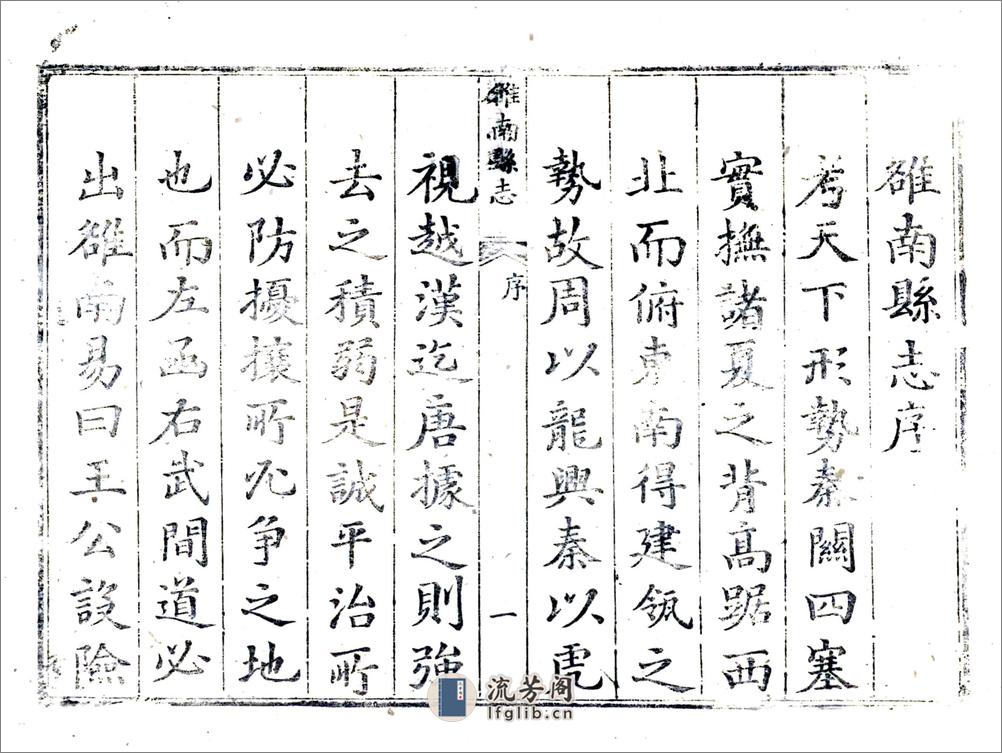 雒南縣志序
考天下形勢秦關四塞
實撫諸夏之背高踞西
北而俯東南得建瓴之
勢故周以龍興秦以虎
雒南縣志 序 一
視越漢迄唐據之則強
去之積弱是誠平治所
必防擾攘所必爭之地
也而左函右武間道必
出雒南易曰王公設險
流芳阁
lfglib.cn